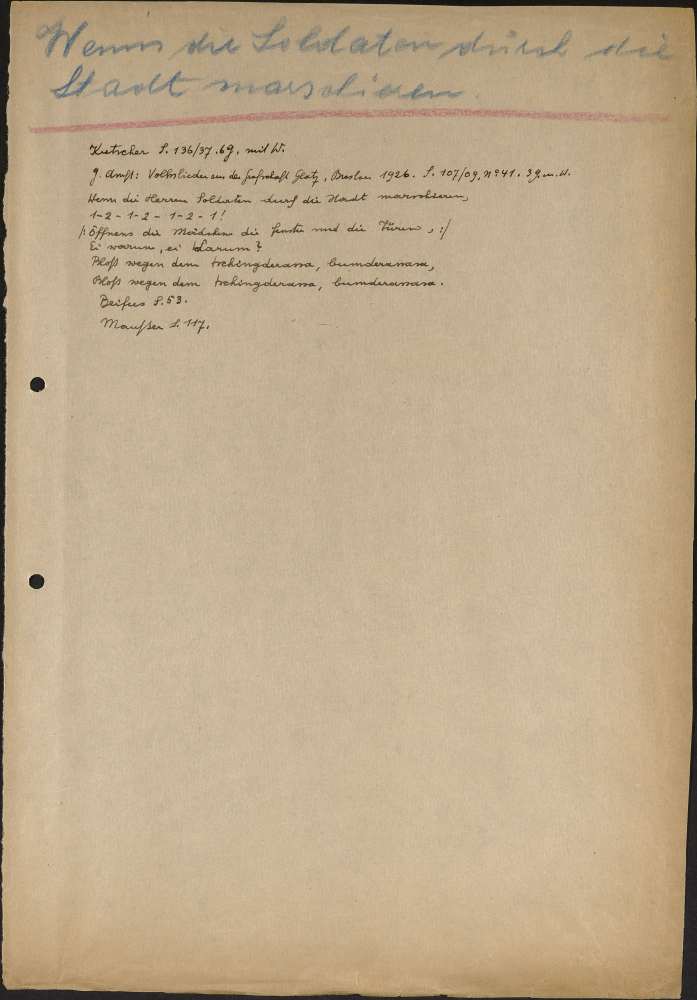 Wenn die Soldaten durch die
Stadt marschieren.
Kutscher S. 136/37. 6g. mit W.
G. Amft: Volkslieder aus der Grafschaft Glatz, Breslau 1926. S. 107/09, No 41. 3g. m. W.
Wenn die Herren Soldaten durch die Stadt marschieren,
1-2-1-2-1-2-1!
/: Öffnens die Mädchen die Fenster und die Türen, :/
Ei warum, ei darum?
Bloß wegen dem tschingderassa, bumderassasa,
Bloß wegen dem tschingderassa, bumderassasa.
Beifus S. 53.
Maußer S. 117.